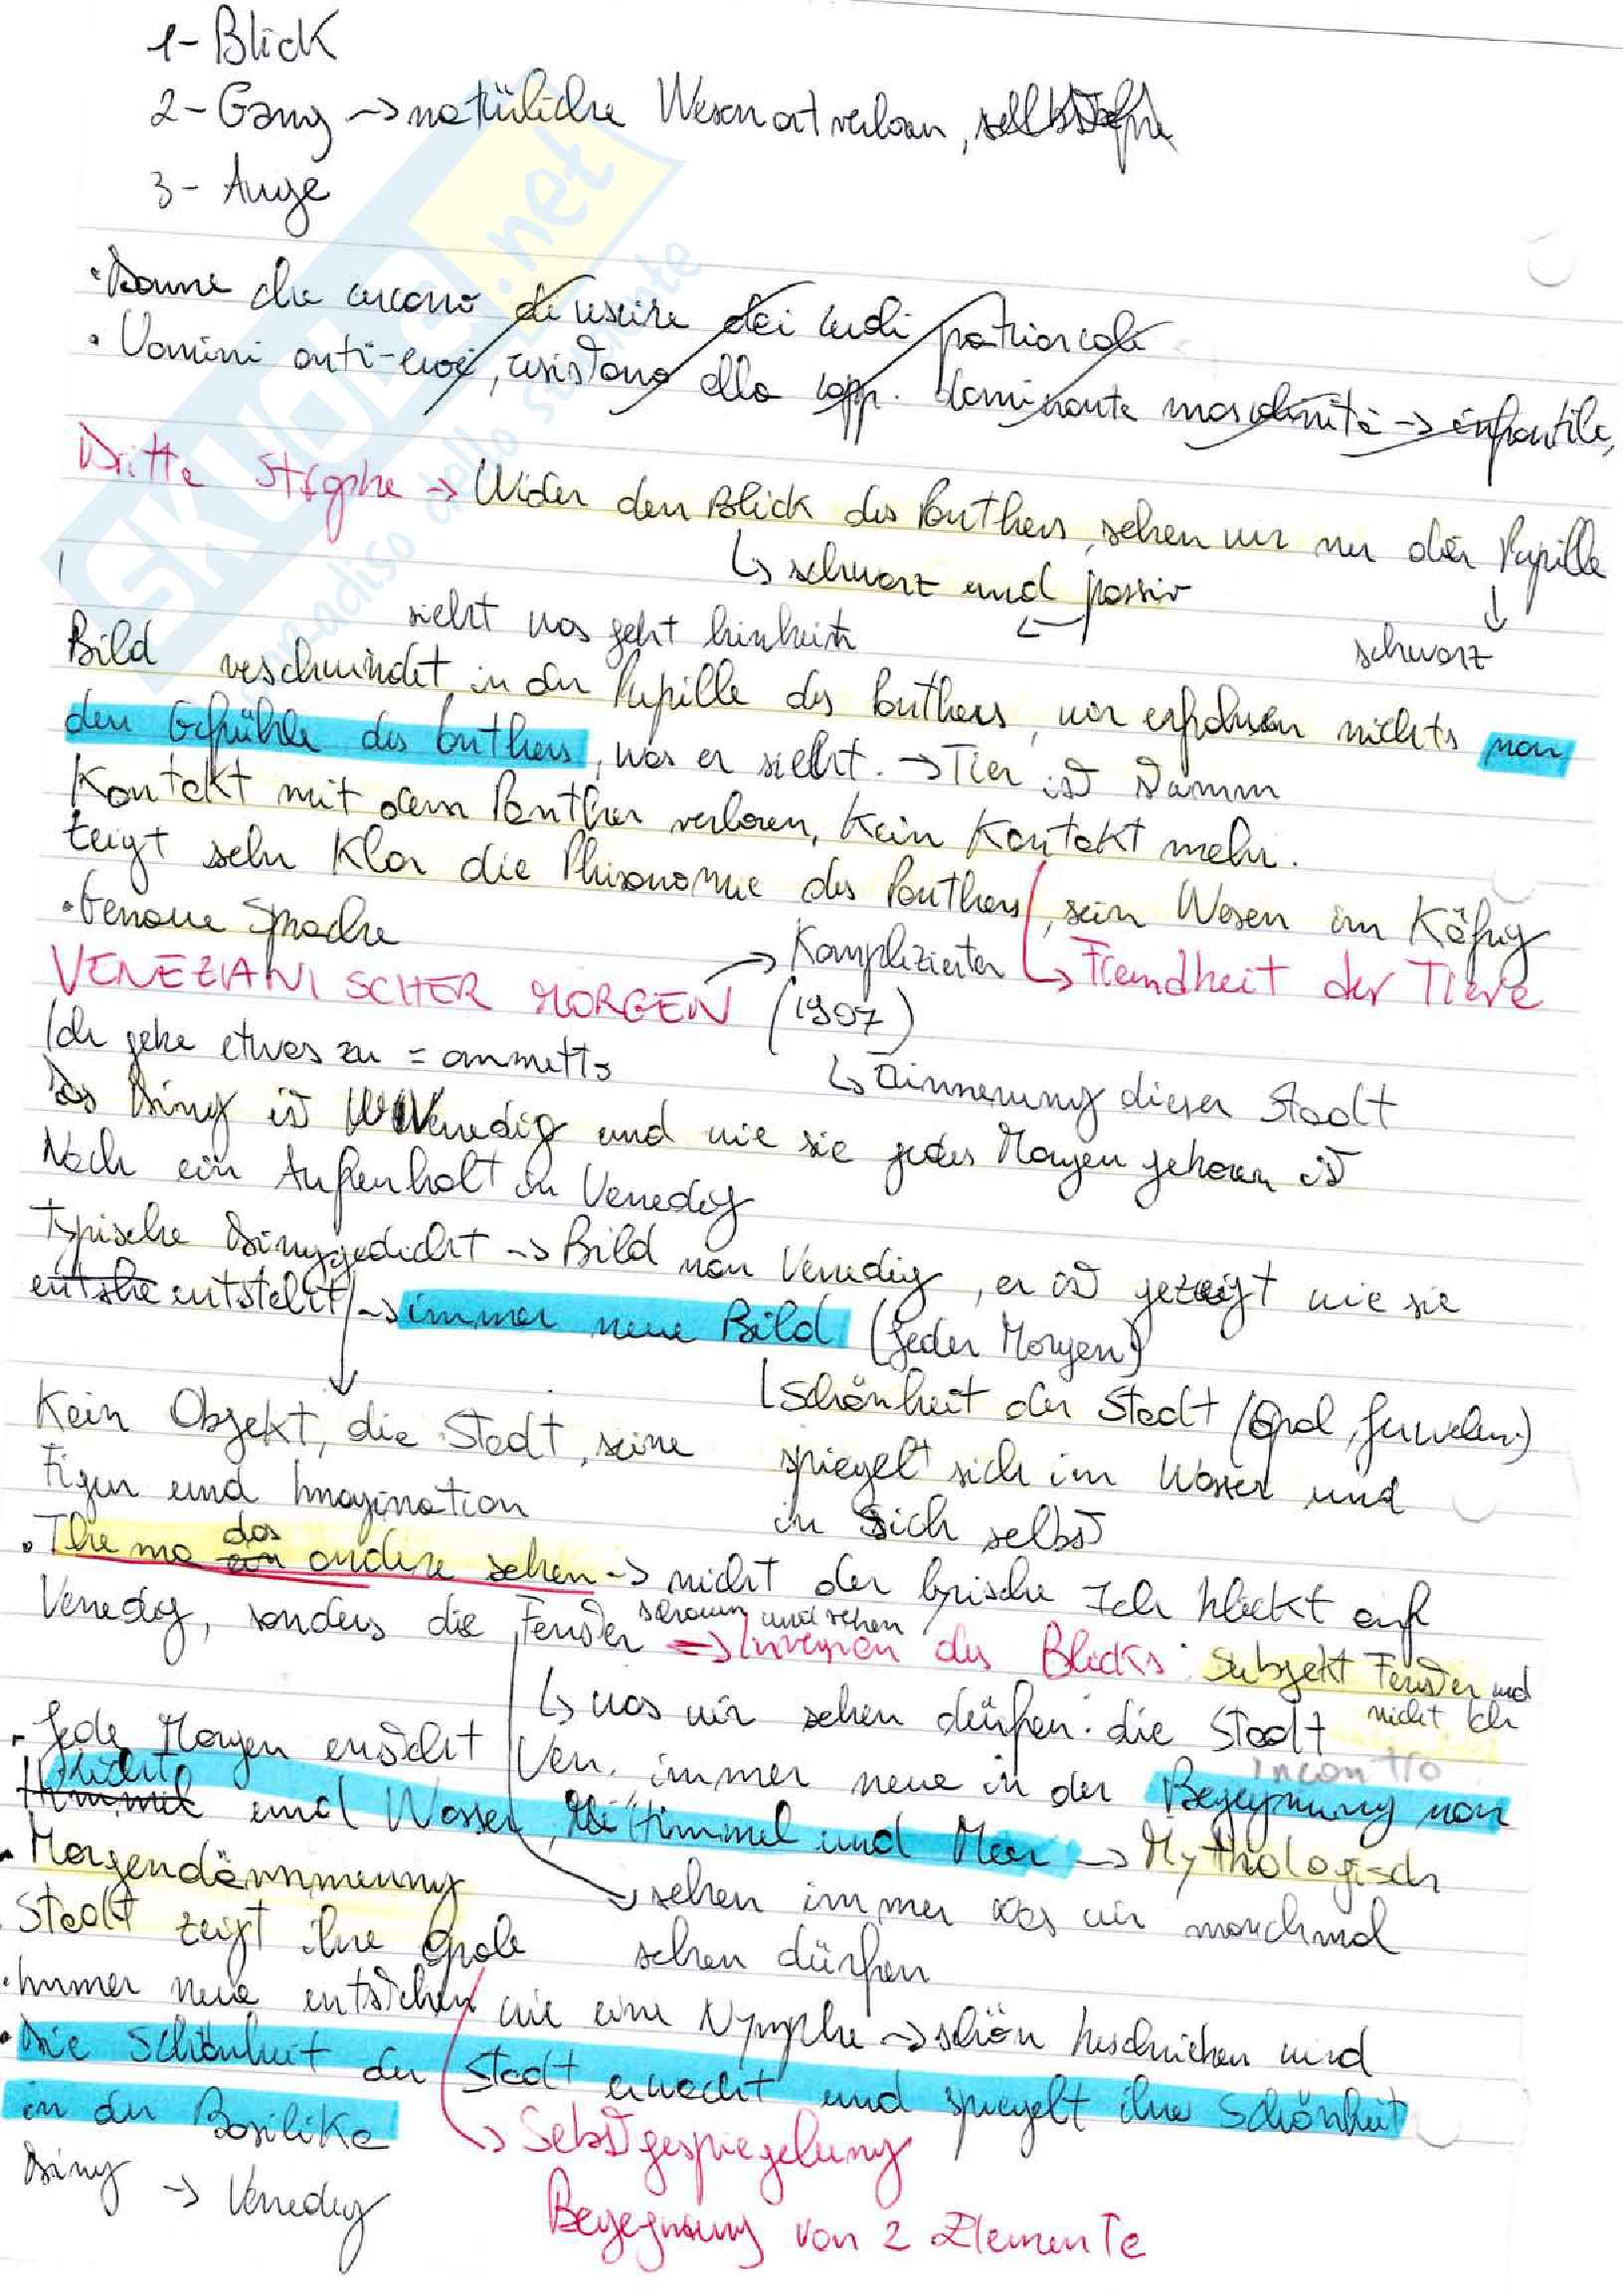 1- Blick
2- Gang → natürliche Wesenart verloren,
3- Auge
• Donne che cercono di uscire dai ruoli patriarcali
• Uomini anti-eroi, resistono alla rapp. dominante mascolinità → infantile,
Dritte Strophe → Wider den Blick des Panthers, sehen wir nur der Pupille
↳ schwarz und passiv ↓
sieht was geht hinhein ← schwarz
Bild verschwindet in der Pupille des Panthers, wir erfahren nichts von
den Gefühle des Panthers, was er sieht. → Tier ist Dumm
Kontakt mit dem Panther verloren, kein Kontakt mehr.
Zeigt sehr Klar die Phisonomie des Panthers, sein Wesen im Käfig
• Genaue Sprache → Komplizierter ↳ Fremdheit der Tiere
VENEZIANISCHER MORGEN (1907)
Ich gehe etwas zu = ammetto ↳ Erinnerung dieser Stadt
Das Ding ist Venedig und wie sie jedes Morgen geboren ist
Nach ein Aufhenhalt in Venedig
Typische Dinggedicht → Bild von Venedig, er ist gezeigt wie sie
entste entsteht → immer neue Bild (Jeder Morgen)
↳ Schönheit der Stadt (Opal, Juwelen)
Kein Objekt, die Stadt, seine spiegelt sich im Wasser und
Figur und Imagination in sich selbst
• Thema ein das andere sehen → nicht der lyrische Ich blickt auf
Venedig, sonders die Fenster schauen und sehen → Inversion des Blicks: Subjekt Fenster und
nicht Ich
↳ was wir sehen dürfen: die Stadt
incontro
- Jede Morgen ensteht Ven. immer neue in der Begegnung von
Himmel Licht und Wasser, Himmel und Meer → Mythologisch
- Morgendämmerung → sehen immer was wir manchmal
• Stadt zeigt ihre Opale sehen dürfen
• Immer neue entstehen wie eine Nymphe → schön beschrieben wird
• Die Schönheit der Stadt erwacht und spiegelt ihre Schönheit
in der Basilike ↳ Sebstgespiegelung
Ding → Venedig
Begegnung von 2 Elemente
SKUOLA.net